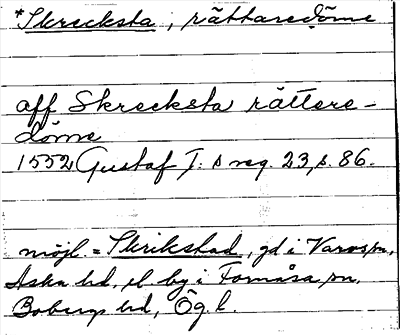 *Skrecksta, rättaredöme
aff Skrecksta rättere-
döme
1552 Gustaf I:s reg. 23, s. 86.
möjl. = Skrikstad, gd i Varvs sn,
Aska hd, el. by i Fornåsa sn,
Bobergs hd, Ög. l.